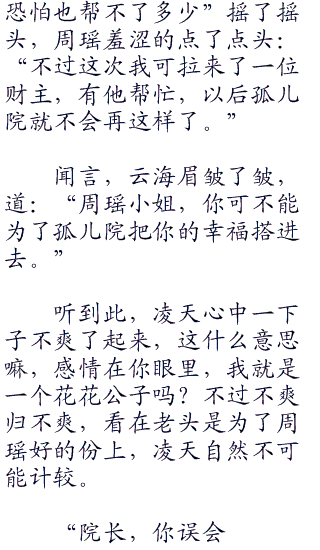 恐怕也帮不了多少”摇了摇
头，周瑶羞涩的点了点头：
“不过这次我可拉来了一位
财主，有他帮忙，以后孤儿
院就不会再这样了。”
闻言，云海眉皱了皱，
道：“周瑶小姐，你可不能
为了孤儿院把你的幸福搭进
去。”
听到此，凌天心中一下
子不爽了起来，这什么意思
嘛，感情在你眼里，我就是
一个花花公子吗？不过不爽
归不爽，看在老头是为了周
瑶好的份上，凌天自然不可
能计较。
“院长，你误会